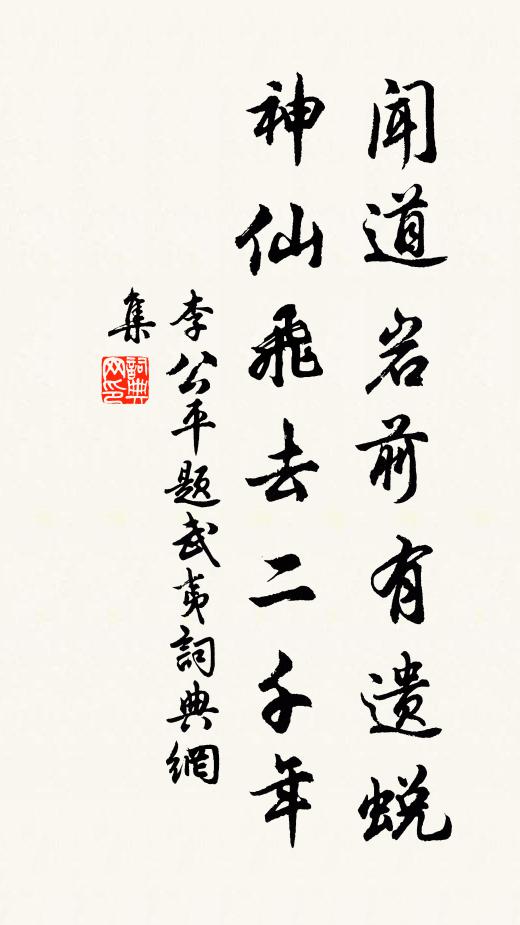 闻道岩前有遗蜕
神仙飛去二千年
李公平题武夷詞典網
集
詞典网印